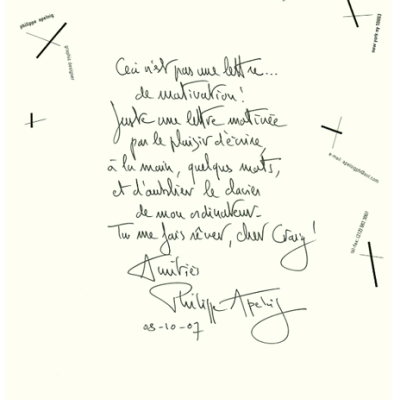 philippe apeloig
graphic designer
new york ny 10003
Ceci n'est pas une lettre...
de motivation!
Juste une lettre motivée
par le plaisir d'écrire,
à la main, quelques mots,
et d'oublier le clavier
de mon ordinateur.
Tu me fais rêver, cher Craig!
Amitiés
Philippe Apeloig
08-10-07